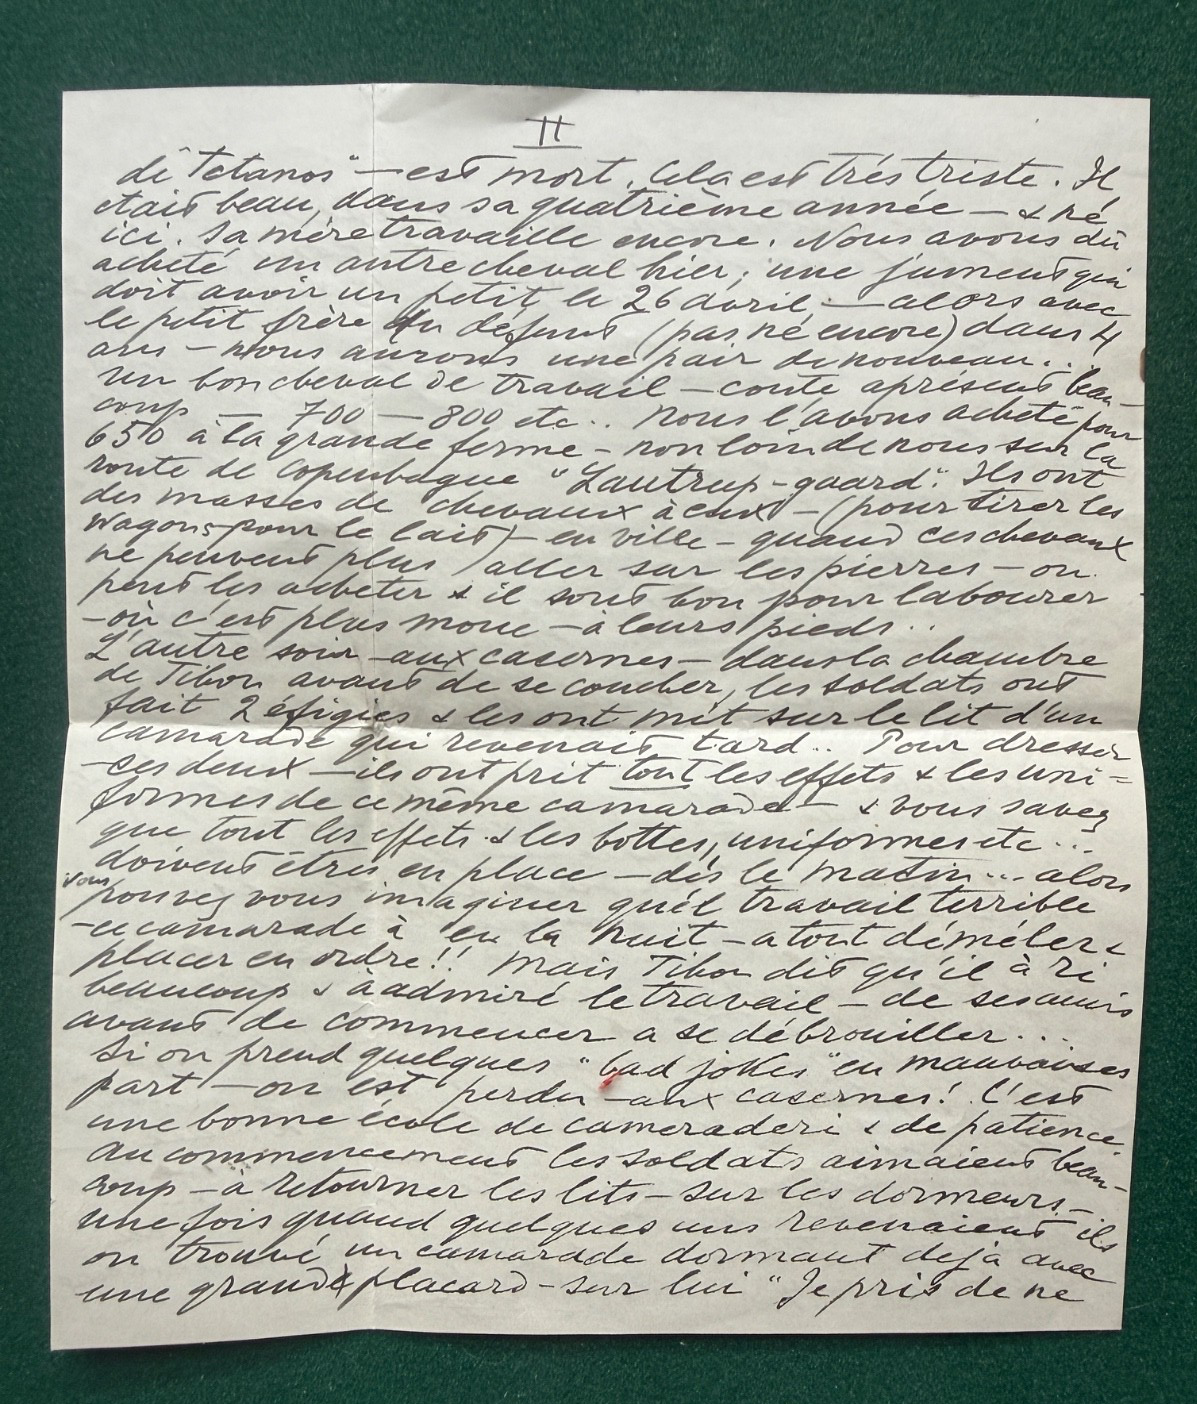 II
de "Tetanos" — est mort. Cela est trés triste. Il
etait beau, dans sa quatrième année — & né
ici. Sa mère travaille encore. Nous avons dû
acheté un autre cheval hier; une jument qui
doit avoir un petit le 26 avril; — alors avec
le petit frère du défunt (pas né encore) dans 4
ans — nous aurons une pair de nouveau..
Un bon cheval de travail — coute aprésent beau-
coup — 700 — 800 etc.. Nous l'avons acheté pour
650 à la grande ferme — non loin de nous sur la
route de Copenhague "Lautrup-gaard". Ils ont
des masses de chevaux à eux — (pour tirer les
wagons pour le lait) — en ville — quand ces chevaux
ne peuvent plus aller sur les pierres — on
peut les acheter & il sont bon pour labourer
— où c'est plus moue — a leurs pieds..
L'autre soir — aux casernes — dans la chambre
de Tihon avant de se coucher, les soldats ont
fait 2 éfigies & les ont mit sur le lit d'un
camarade qui revenait tard.. Pour dresser
— ces deux — ils ont prit tout les effets & les uni=
formes de ce même camarade — & vous savez
que tout les effets & les bottes, uniformes etc...
doivent êtres en place — dès le matin... alors
vous pouvez vous imaginer quél travail terrible
— ce camarade à eu la nuit — a tout déméler &
placer en ordre!! Mais Tihon dit qu'il à ri
beaucoup & à admiré le travail — de ses amis
avant de commencer a se débrouiller...
Si on prend quelques "bad jokes" en mauvaises
part — on est perdu — aux casernes! C'est
une bonne école de cameraderi & de patience
Au commencement les soldats aimaient beau-
coup — à retourner les lits — sur les dormeurs —
une fois quand quelques uns revenaient ils
on trouvé un camarade dormant deja avec
une grande placard — sur lui "Je pris de ne